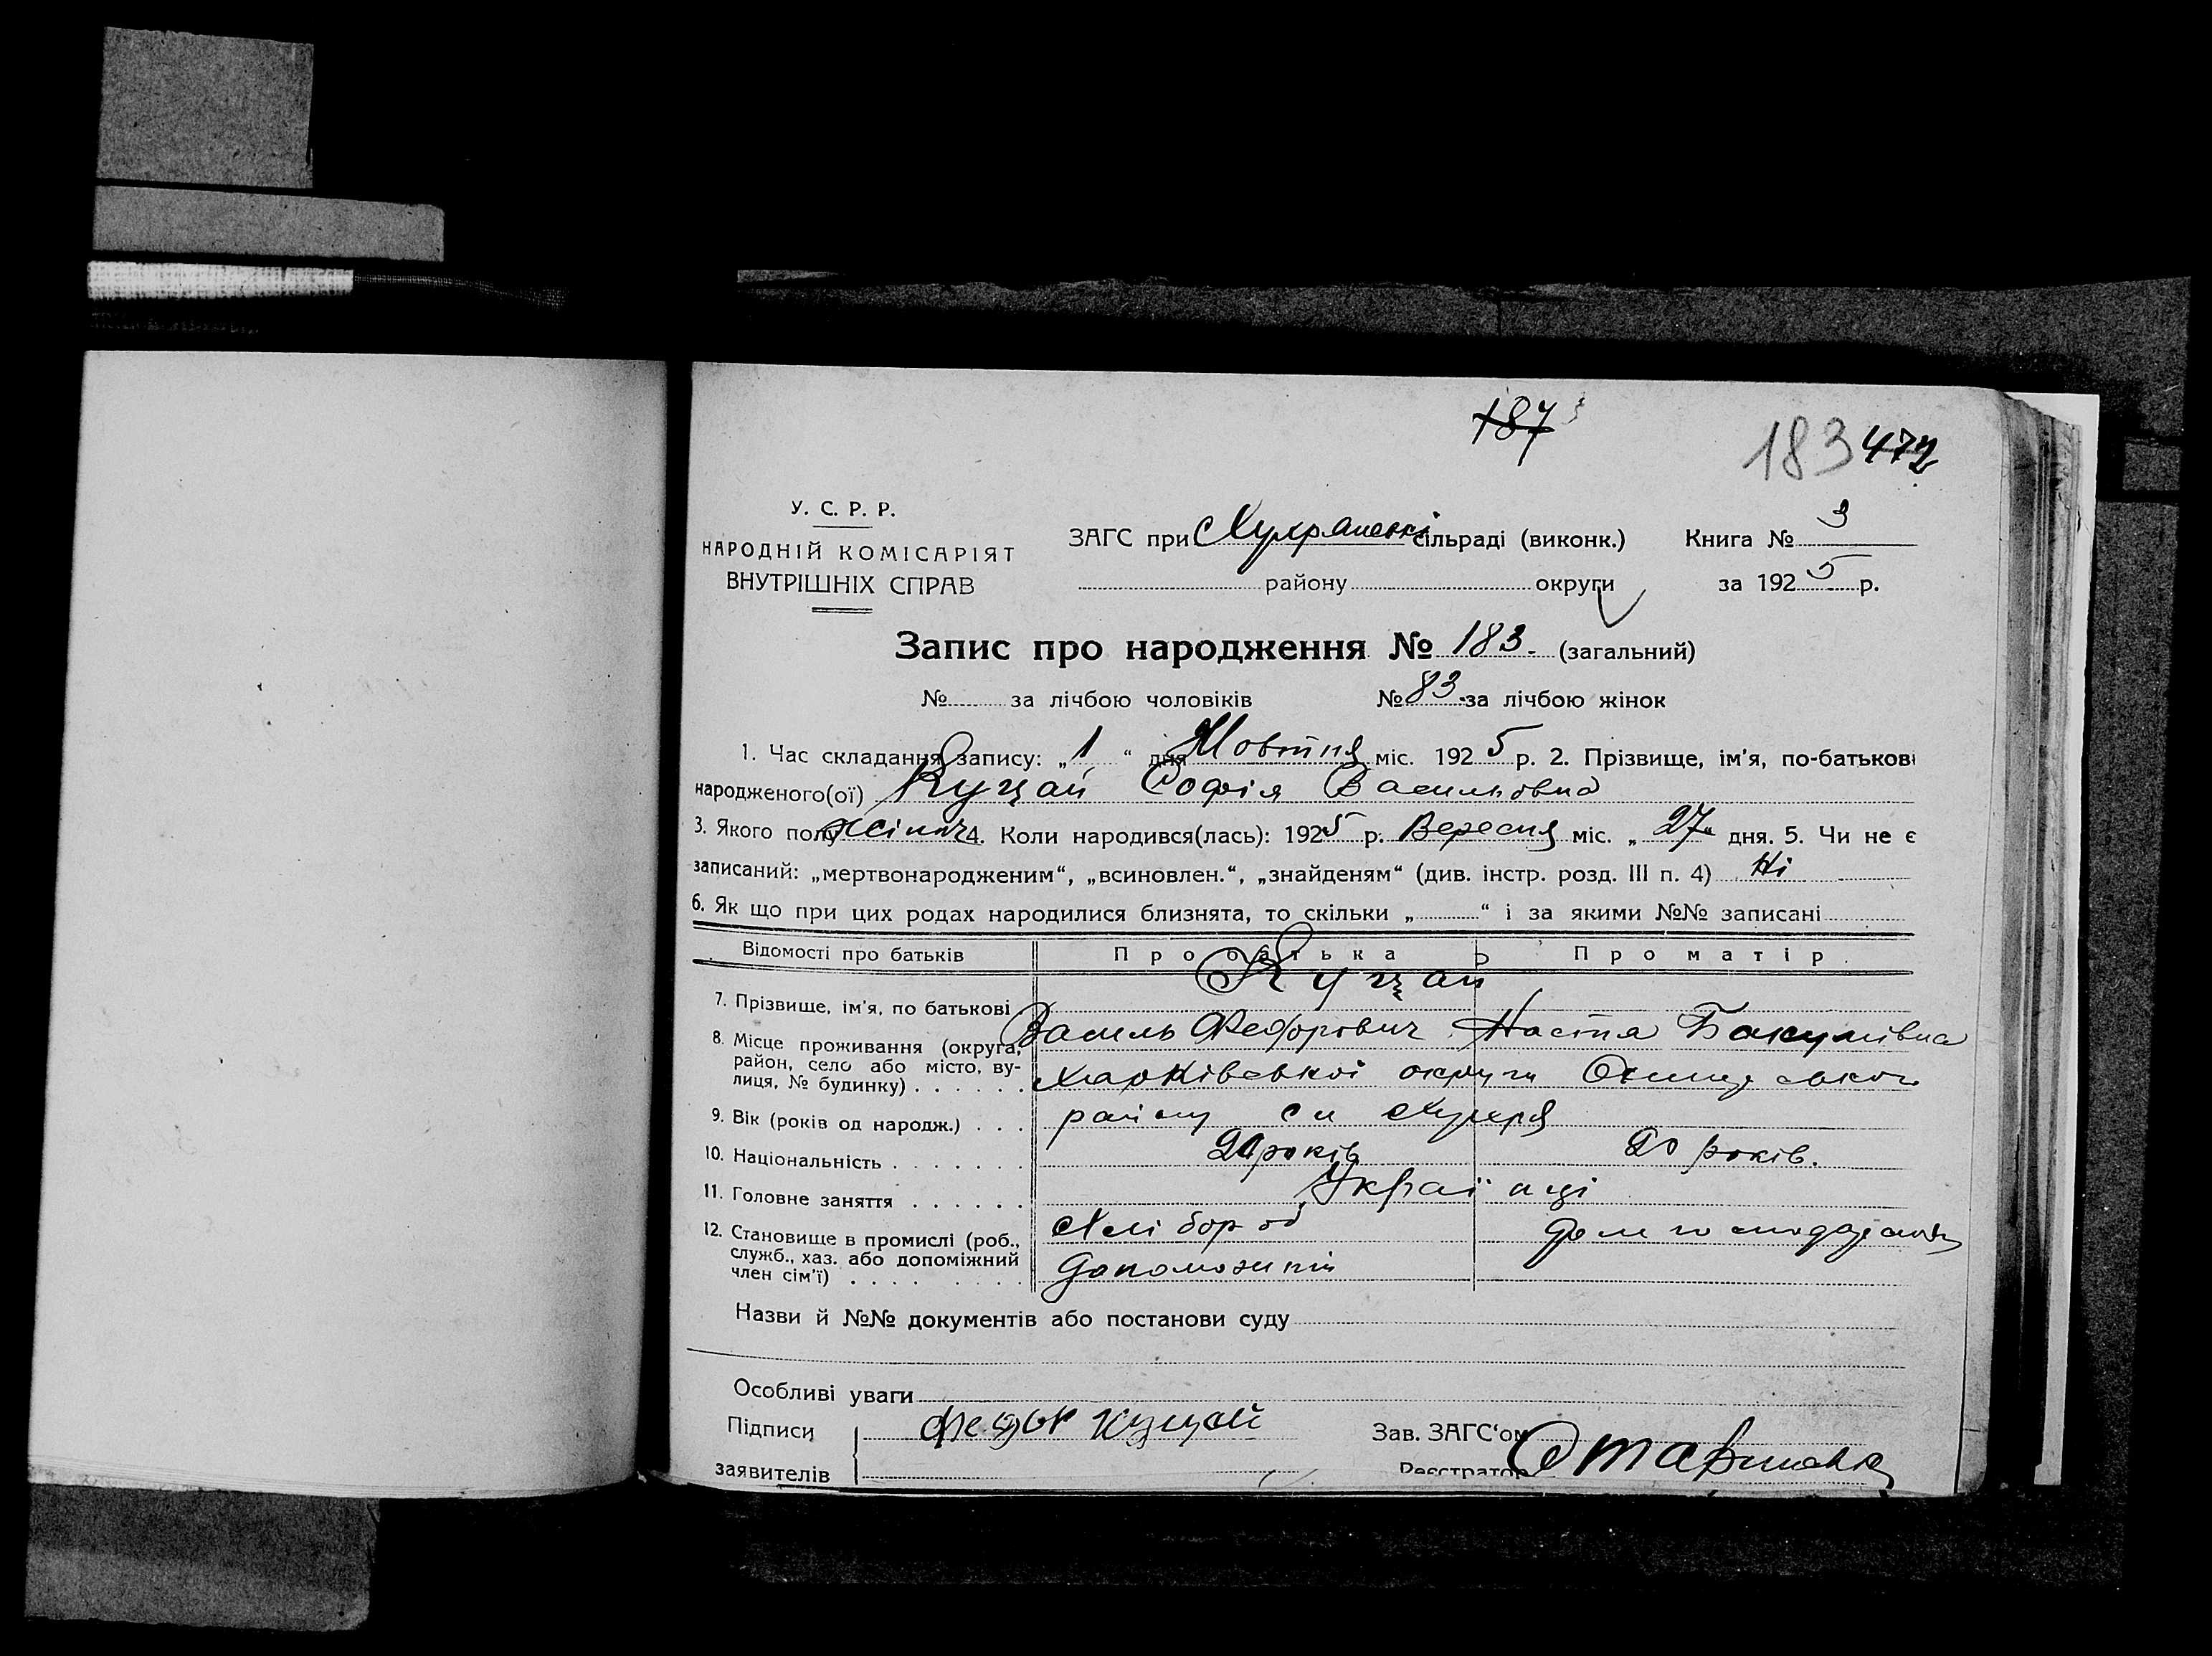 187
183 472
У. С. Р. Р.
НАРОДНІЙ КОМІСАРІЯТ
ВНУТРІШНІХ СПРАВ
ЗАГС при сільраді (виконк.) Книга № 3
району округи за 1925 р.
Запис про народження № 183. (загальний)
№ за лічбою чоловіків № 83 за лічбою жінок
1. Час складання запису: „1“ дня Жовтня міс. 1925 р. 2. Прізвище, ім'я, по-батькові
народженого(ої) Куцай Софія Васильовна
3. Якого полу жіноч 4. Коли народився(лась): 1925 р. Вересня міс. „27“ дня. 5. Чи не є
записаний: „мертвонародженим“, „всиновлен.“, „знайденям“ (див. інстр. розд. III п. 4) Ні
6. Як що при цих родах народилися близнята, то скільки „ “ і за якими №№ записані
Відомості про батьків Про батька Про матір.
Куцай
7. Прізвище, ім'я, по батькові
Василь Федорович Настя
8. Місце проживання (округа, район, село або місто, вулиця, № будинку)
Харківської округи
9. Вік (років од народж.)
району
10. Національність
років 20 років.
11. Головне заняття
Українці
12. Становище в промислі (роб., служб., хаз. або допоміжний член сім'ї)
Хлібороб
Назви й №№ документів або постанови суду
Особливі уваги
Підписи Федор Куцай Зав. ЗАГС'ом
заявителів Реєстратор